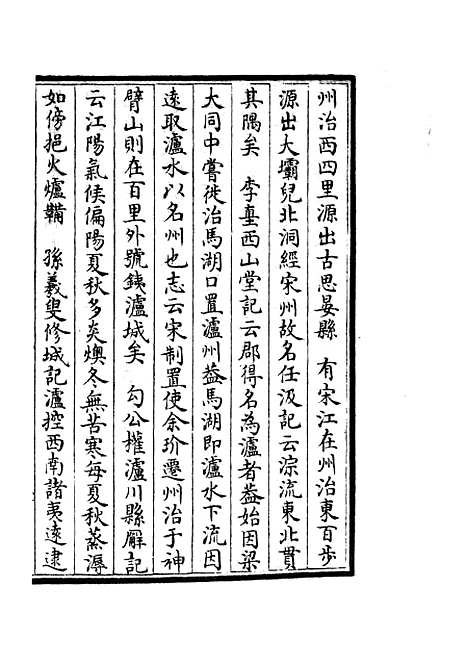 州治西四里源出古思晏縣　有宋江在州治東百步
源出大壩兒北洞經宋州故名任汲記云淙流東北貫
其隅矣　李𡌴西山堂記云郡得名為瀘者葢始因梁
大同中嘗徙治馬湖口置瀘州葢馬湖即瀘水下流因
遠取瀘水以名州也志云宋制置使余玠遷州治于神
臂山則在百里外號銕瀘城矣　勾公權瀘川縣廨記
云江陽氣候偏陽夏秋多炎燠冬無苦寒每夏秋蒸溽
如傍挹火爐鞴　孫羲叟修城記瀘控西南諸夷遠逮